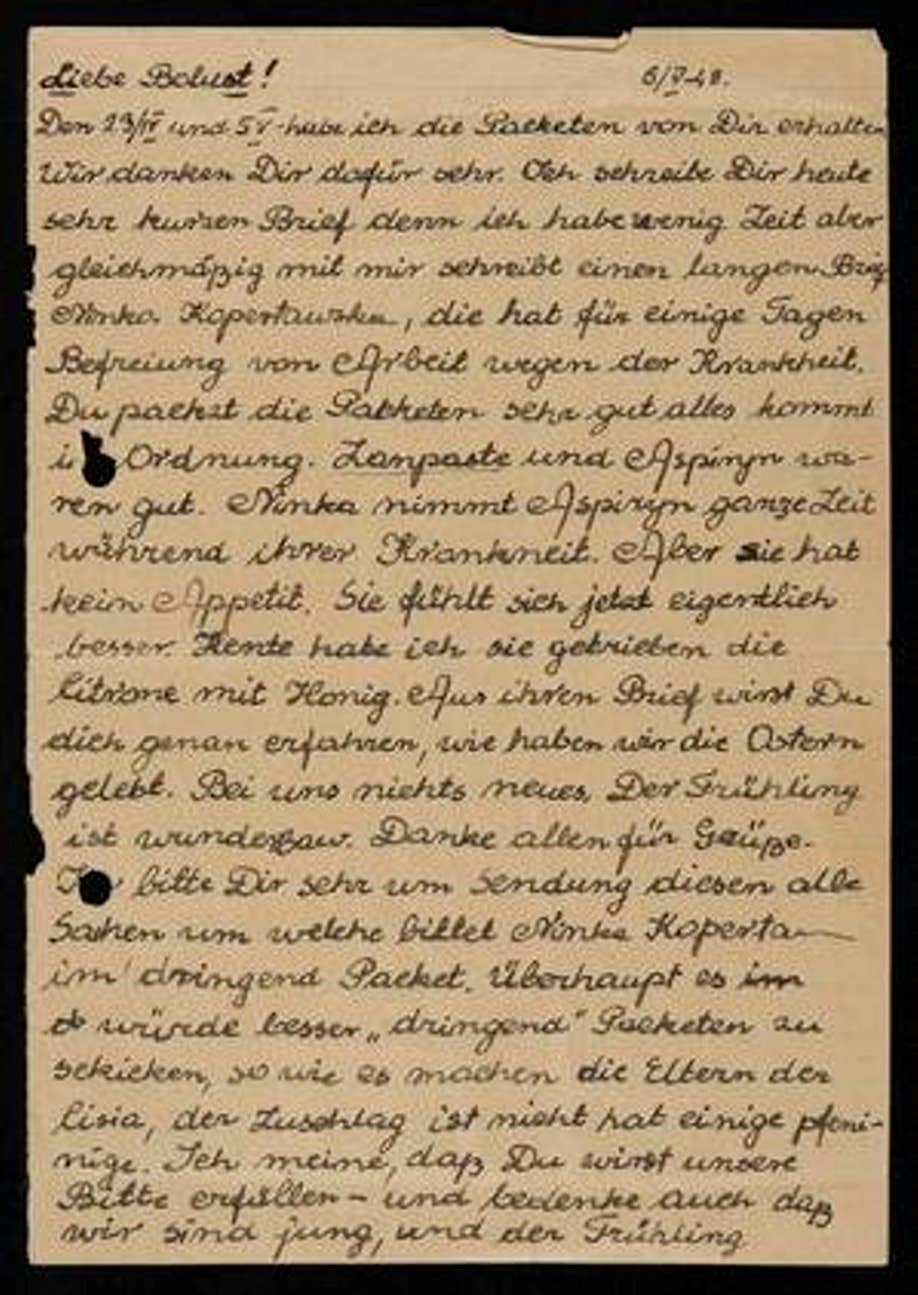 Liebe Bolust! 6/V-43.
Den 23/IV und 5V-habe ich die Packeten von Dir erhalten
Wir danken Dir dafür sehr. Ich schreibe Dir heute
sehr kurzen Brief denn ich habe wenig Zeit aber
gleichmäßig mit mir schreibt einen langen Brief
Ninka Kopertawska, die hat für einige Tagen
Befreiung von Arbeit wegen der Krankheit.
Du packst die Packeten sehr gut alles kommt
i Ordnung. Zanpaste und Aspiryn wa-
ren gut. Ninka nimmt Aspiryn ganze Zeit
während ihrer Krankheit. Aber sie hat
kein Appetit. Sie fühlt sich jetzt eigentlich
besser. Heute habe ich sie getrieben die
Citrone mit Honig. Aus ihren Brief wirst Du
dich genau erfahren, wie haben wir die Ostern
gelebt. Bei uns nichts neues. Der Frühling
ist wunderbaw. Danke allen für Grüße.
bitte Dir sehr um Sendung diesen alle
Sachen um welche bittet Ninka Koperta
im dringend Packet. Überhaupt es im
würde besser „dringend" Packeten zu
schicken, so wie es machen die Eltern der
Lisia, der Zuschlag ist nicht hat einige pfeni-
nige. Ich meine, daß Du wirst unsere
Bitte erfüllen - und bedenke auch daß
wir sind jung, und der Frühling